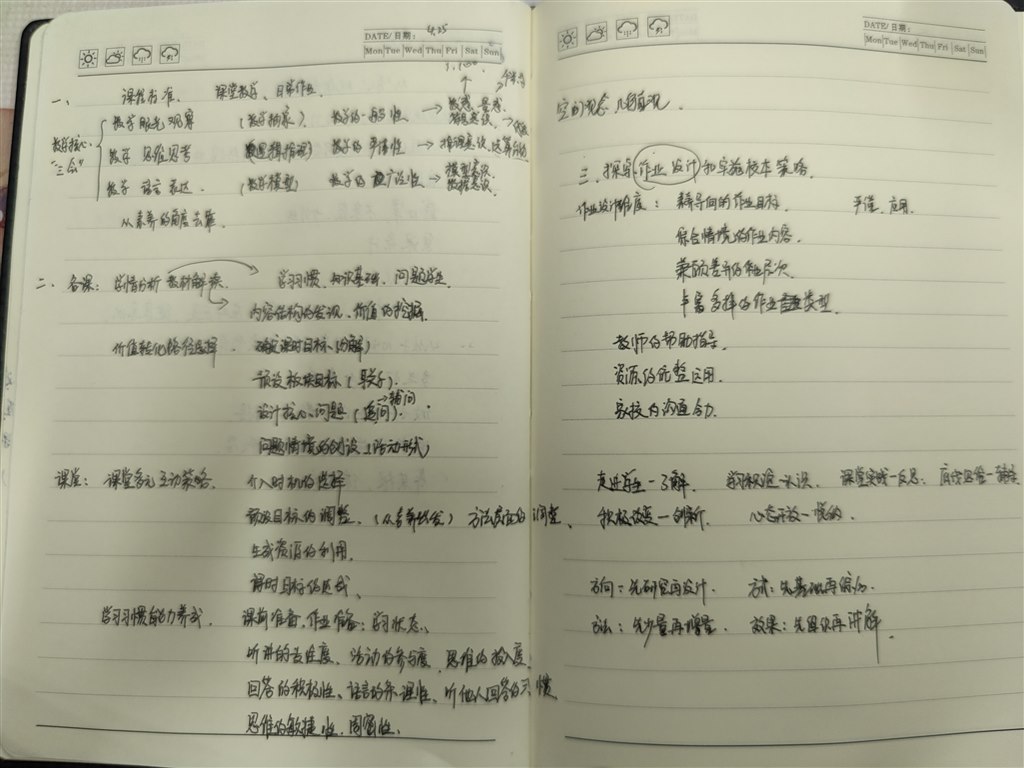 DATE/日期: 4.25
Mon Tue Wed Thu Fri Sat Sun
一、 课程标准、 课堂教学、日常作业.
数学核心 "三会"
数学眼光观察 (数学抽象) 数学的一般性 → 数感、量感、符号意识、
数学 思维思考 (逻辑推理) 数学的严谨性 → 推理意识、运算能力
数学 语言表达. (数学模型) 数学的应用广泛性 → 模型意识、数据意识、
从素养的角度去靠.
二、备课: 学情分析 教材解读. 学习习惯、知识基础、问题
内容结构的发现、价值的挖掘.
价值转化路径选择. 确定课时目标(分解)
预设板块目标( ).
设计核心问题(追问).
问题情境的创设(活动形式)
课堂: 课堂多元互动策略. 介入时机的选择
预设目标的调整、 方法 的调整、
生成资源的利用.
课时目标的达成、
学习习惯能力养成. 课前准备、作业准备、学习状态、
听讲的专注度、活动的参与度、思维的投入度.
回答的积极性、语言的条理性、听他人回答的习惯
思维的敏捷性、周密性、
DATE/日期:
Mon Tue Wed Thu Fri Sat Sun
空间观念、几何直观、
三、探究作业设计和实施校本策略.
作业设计维度: 素养导向的作业目标. 严谨、应用.
综合情境的作业内容.
兼顾差异的作业层次.
丰富多样的作业类型.
教师的帮助指导.
资源的完整运用.
家校内沟通合力.
走进学生—了解. 认识. 课堂实践—反思.
积极改变—创新. 心态开放—
方向:先研究再设计. 方式:先基础再
方法:先少量再增量. 效果:先 再讲解.